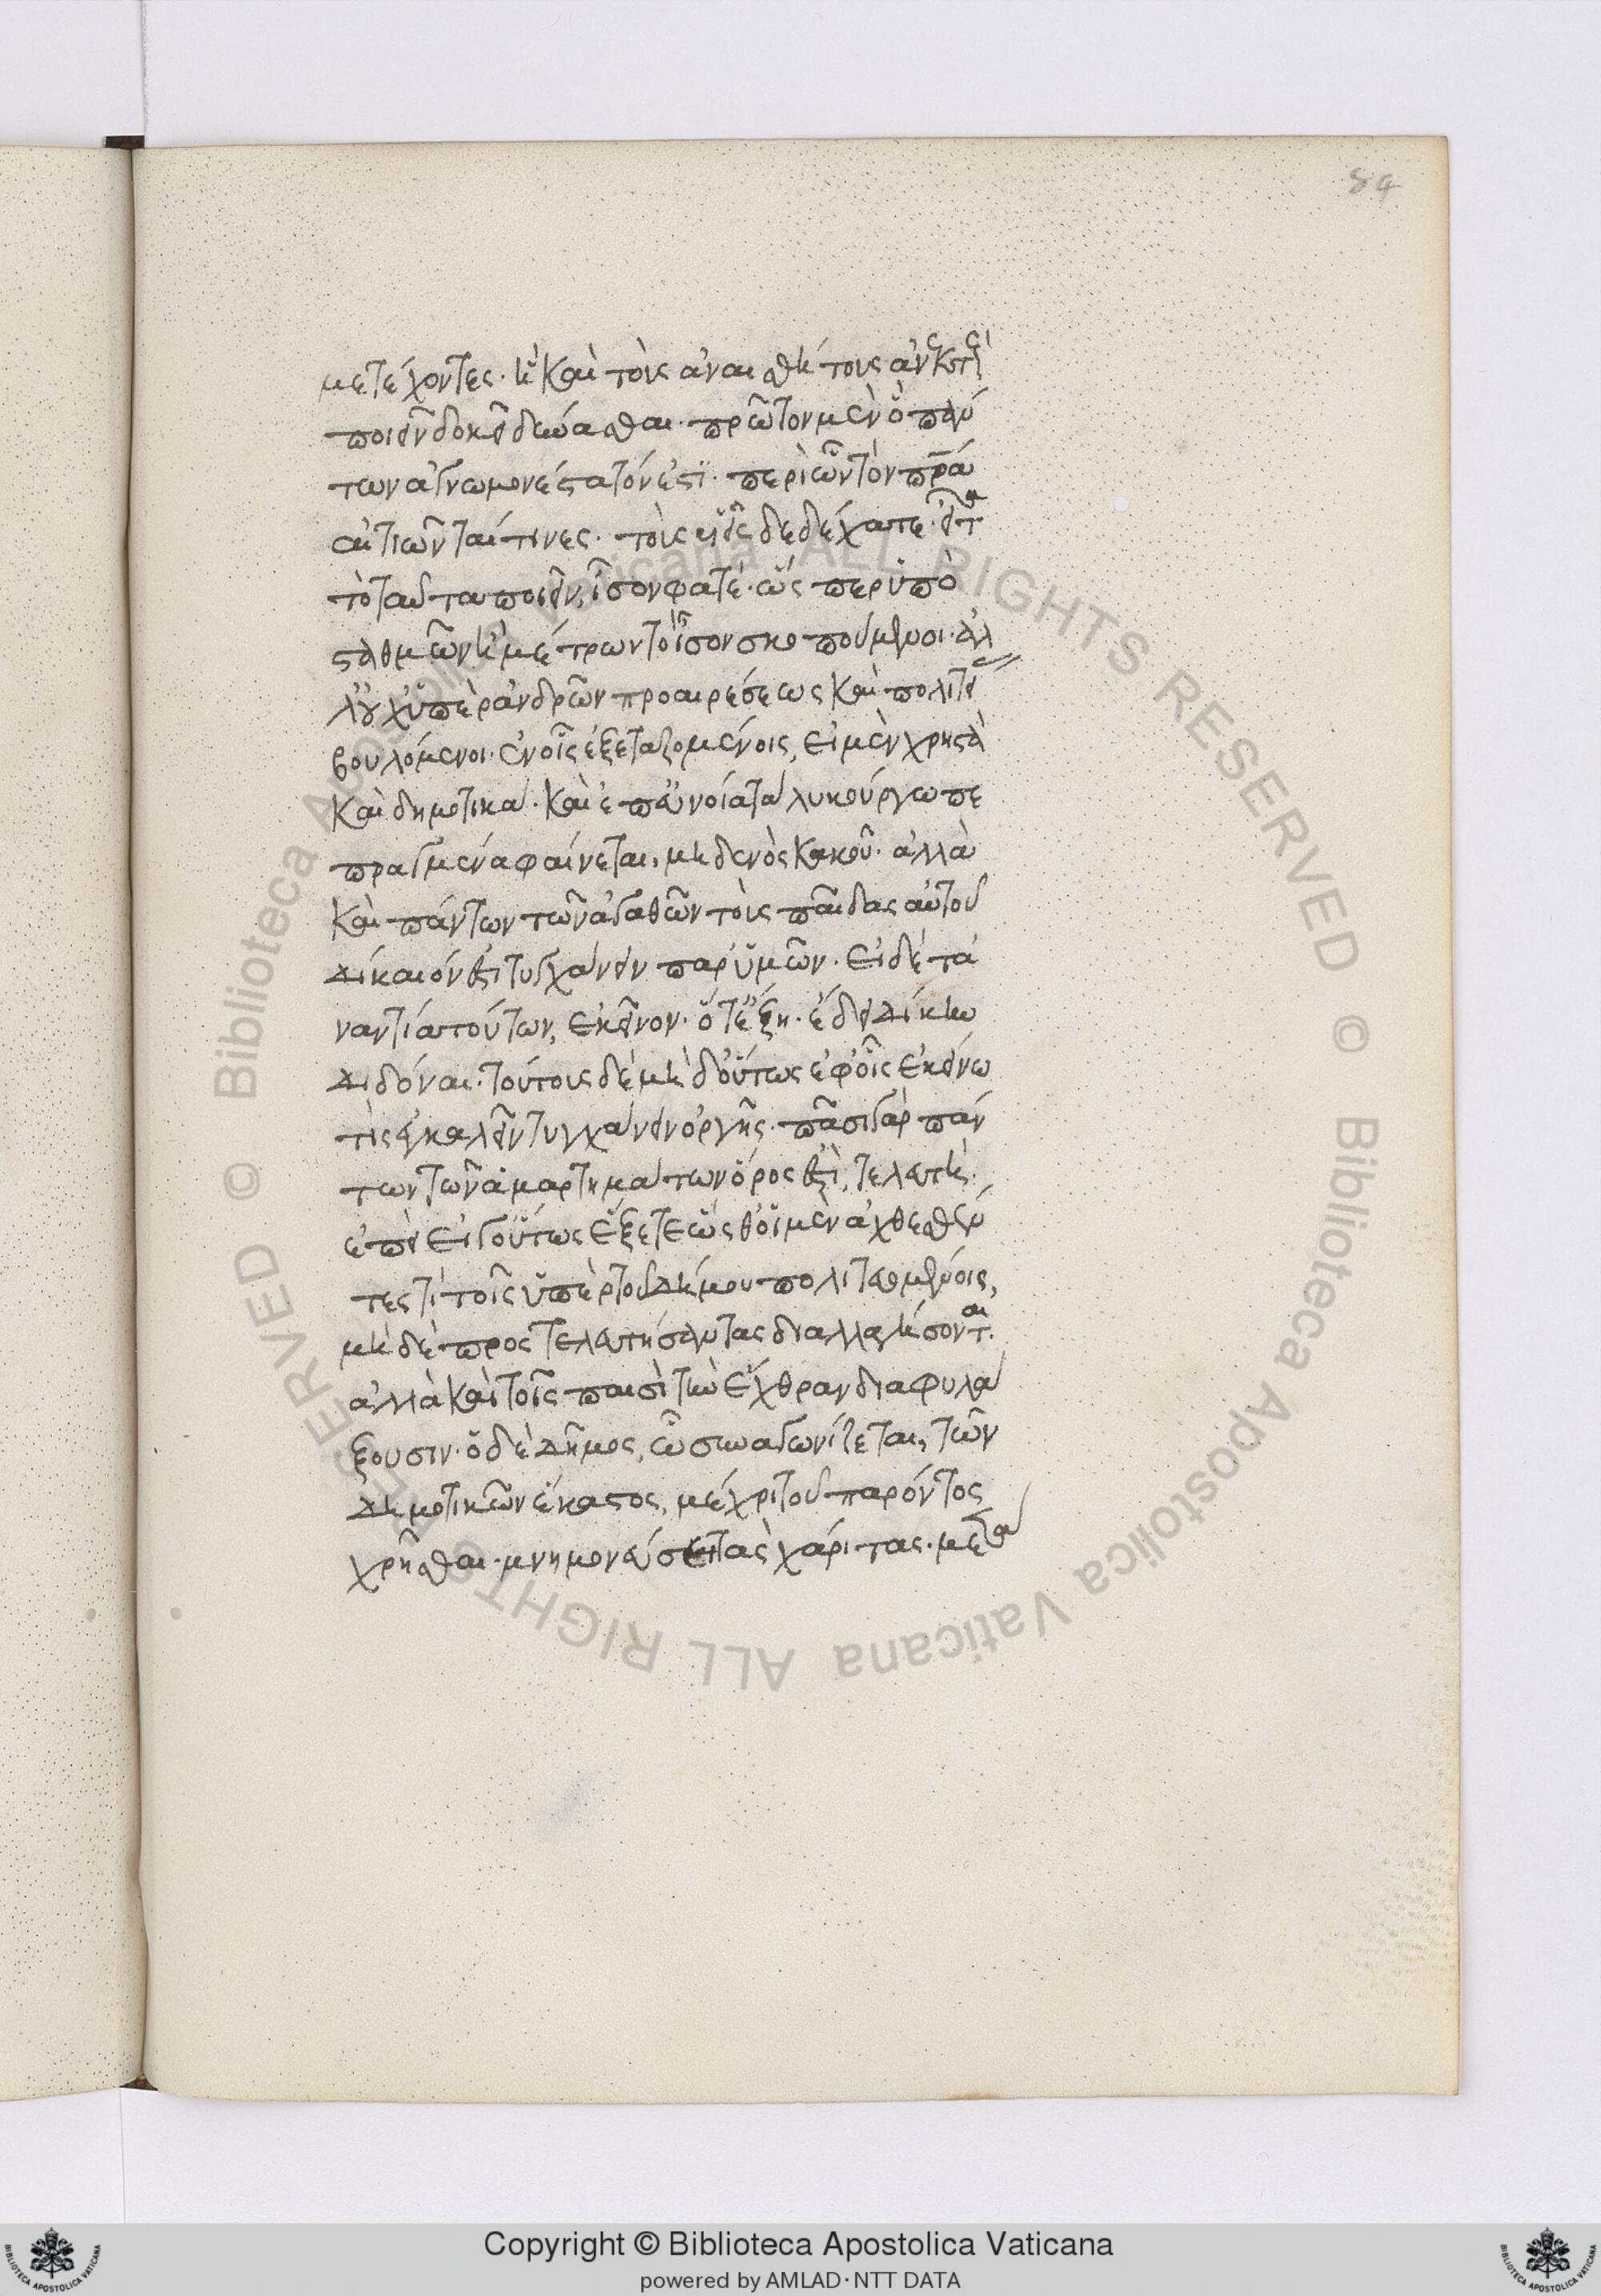 μετέχοντες· ἢ καὶ τοὺς ἀναισθήτους ἀνεκτῶς
ποιεῖν δοκεῖ δύνασθαι· πρῶτον μὲν ὃ πάν
των ἀγνωμονέστατόν ἐστι· περὶ ὧν τὸν πρα
αἰτιῶνταί τινες· τοὺς υἱεῖς δεδέχατε· εἶτα
τὸ ταῦτα ποιεῖν, ἴσον φατέ· ὥσπερ ὑπὸ
σταθμῶν ἢ μέτρων τὸ ἴσον σκοπούμενοι· ἀλ
λ' οὐχ ὑπὲρ ἀνδρῶν προαιρέσεως καὶ πολιτεί
βουλόμενοι· ἐν οἷς ἐξεταζομένοις, εἰ μὲν χρηστὰ
καὶ δημοτικά· καὶ ἐπ' εὐνοία τὰ λυκούργω πε
πραγμένα φαίνεται, μηδενὸς κακοῦ· ἀλλὰ
καὶ πάντων τῶν ἀγαθῶν τοὺς παῖδας αὐτοῦ
δίκαιόν ἐστι τυγχάνειν παρ' ὑμῶν· εἰ δὲ τἀ
ναντία τούτων, ἐκεῖνον· ὅτ' ἔζη· ἔδει δίκην
διδόναι· τούτους δὲ μηδ' οὕτως ἐφ' οἷς ἐκείνω
τὶς ἐγκαλεῖν τυγχάνειν ὀργῆς· πᾶσι γὰρ πάν
των τῶν ἁμαρτημάτων ὅρος ἐστὶ, τελευτή·
ἐπεὶ εἰ γ' οὕτως ἕξετε ὥσθ' οἱ μὲν ἀχθεσθέν
τες τὶ τοῖς ὑπὲρ τοῦ δήμου πολιτευομένοις,
μὴ δὲ προς τελευτήσαντας διαλλαγήσονται·
ἀλλὰ καὶ τοῖς παισὶ τὴν ἔχθραν διαφυλά
ξουσιν· ὁ δὲ δῆμος, ᾧ συναγωνίζεται, τῶν
δημοτικῶν ἕκαστος, μέχρι τοῦ παρόντος
χρῆσθαι· μνημονεύσει τὰς χάριτας· μετὰ
84
© Biblioteca Apostolica Vaticana ALL RIGHTS RESERVED © Biblioteca Apostolica Vaticana ALL RIGHTS RESERVED
Copyright © Biblioteca Apostolica Vaticana
powered by AMLAD·NTT DATA